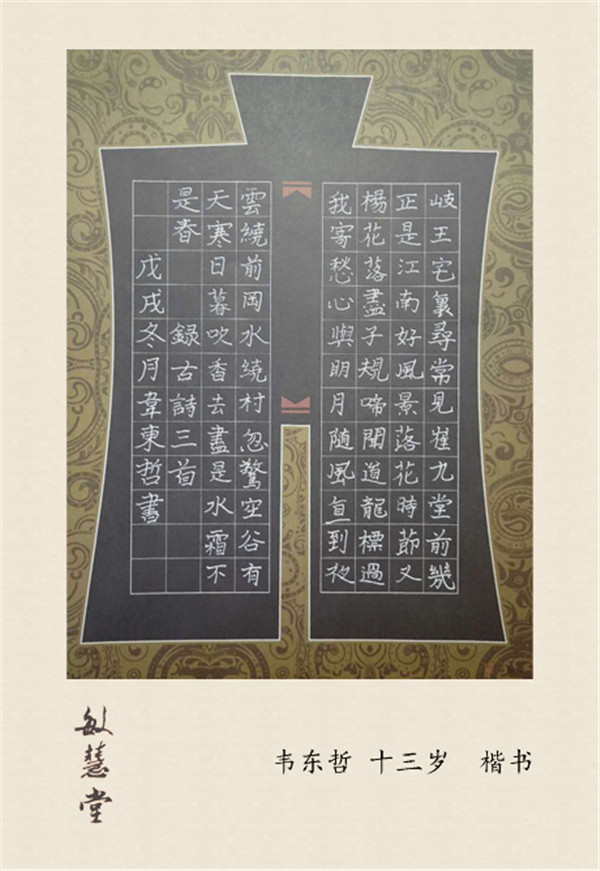 岐王宅裏尋常見崔九堂前幾
正是江南好風景落花時節又
楊花落盡子規啼聞道龍標過
我寄愁心與明月随風直到夜
雲繞前岡水繞村忽驚空谷有
天寒日暮吹香去盡是水霜不
是春 録古詩三首
戊戌冬月韋東哲書
敏慧堂
韦东哲 十三岁 楷书